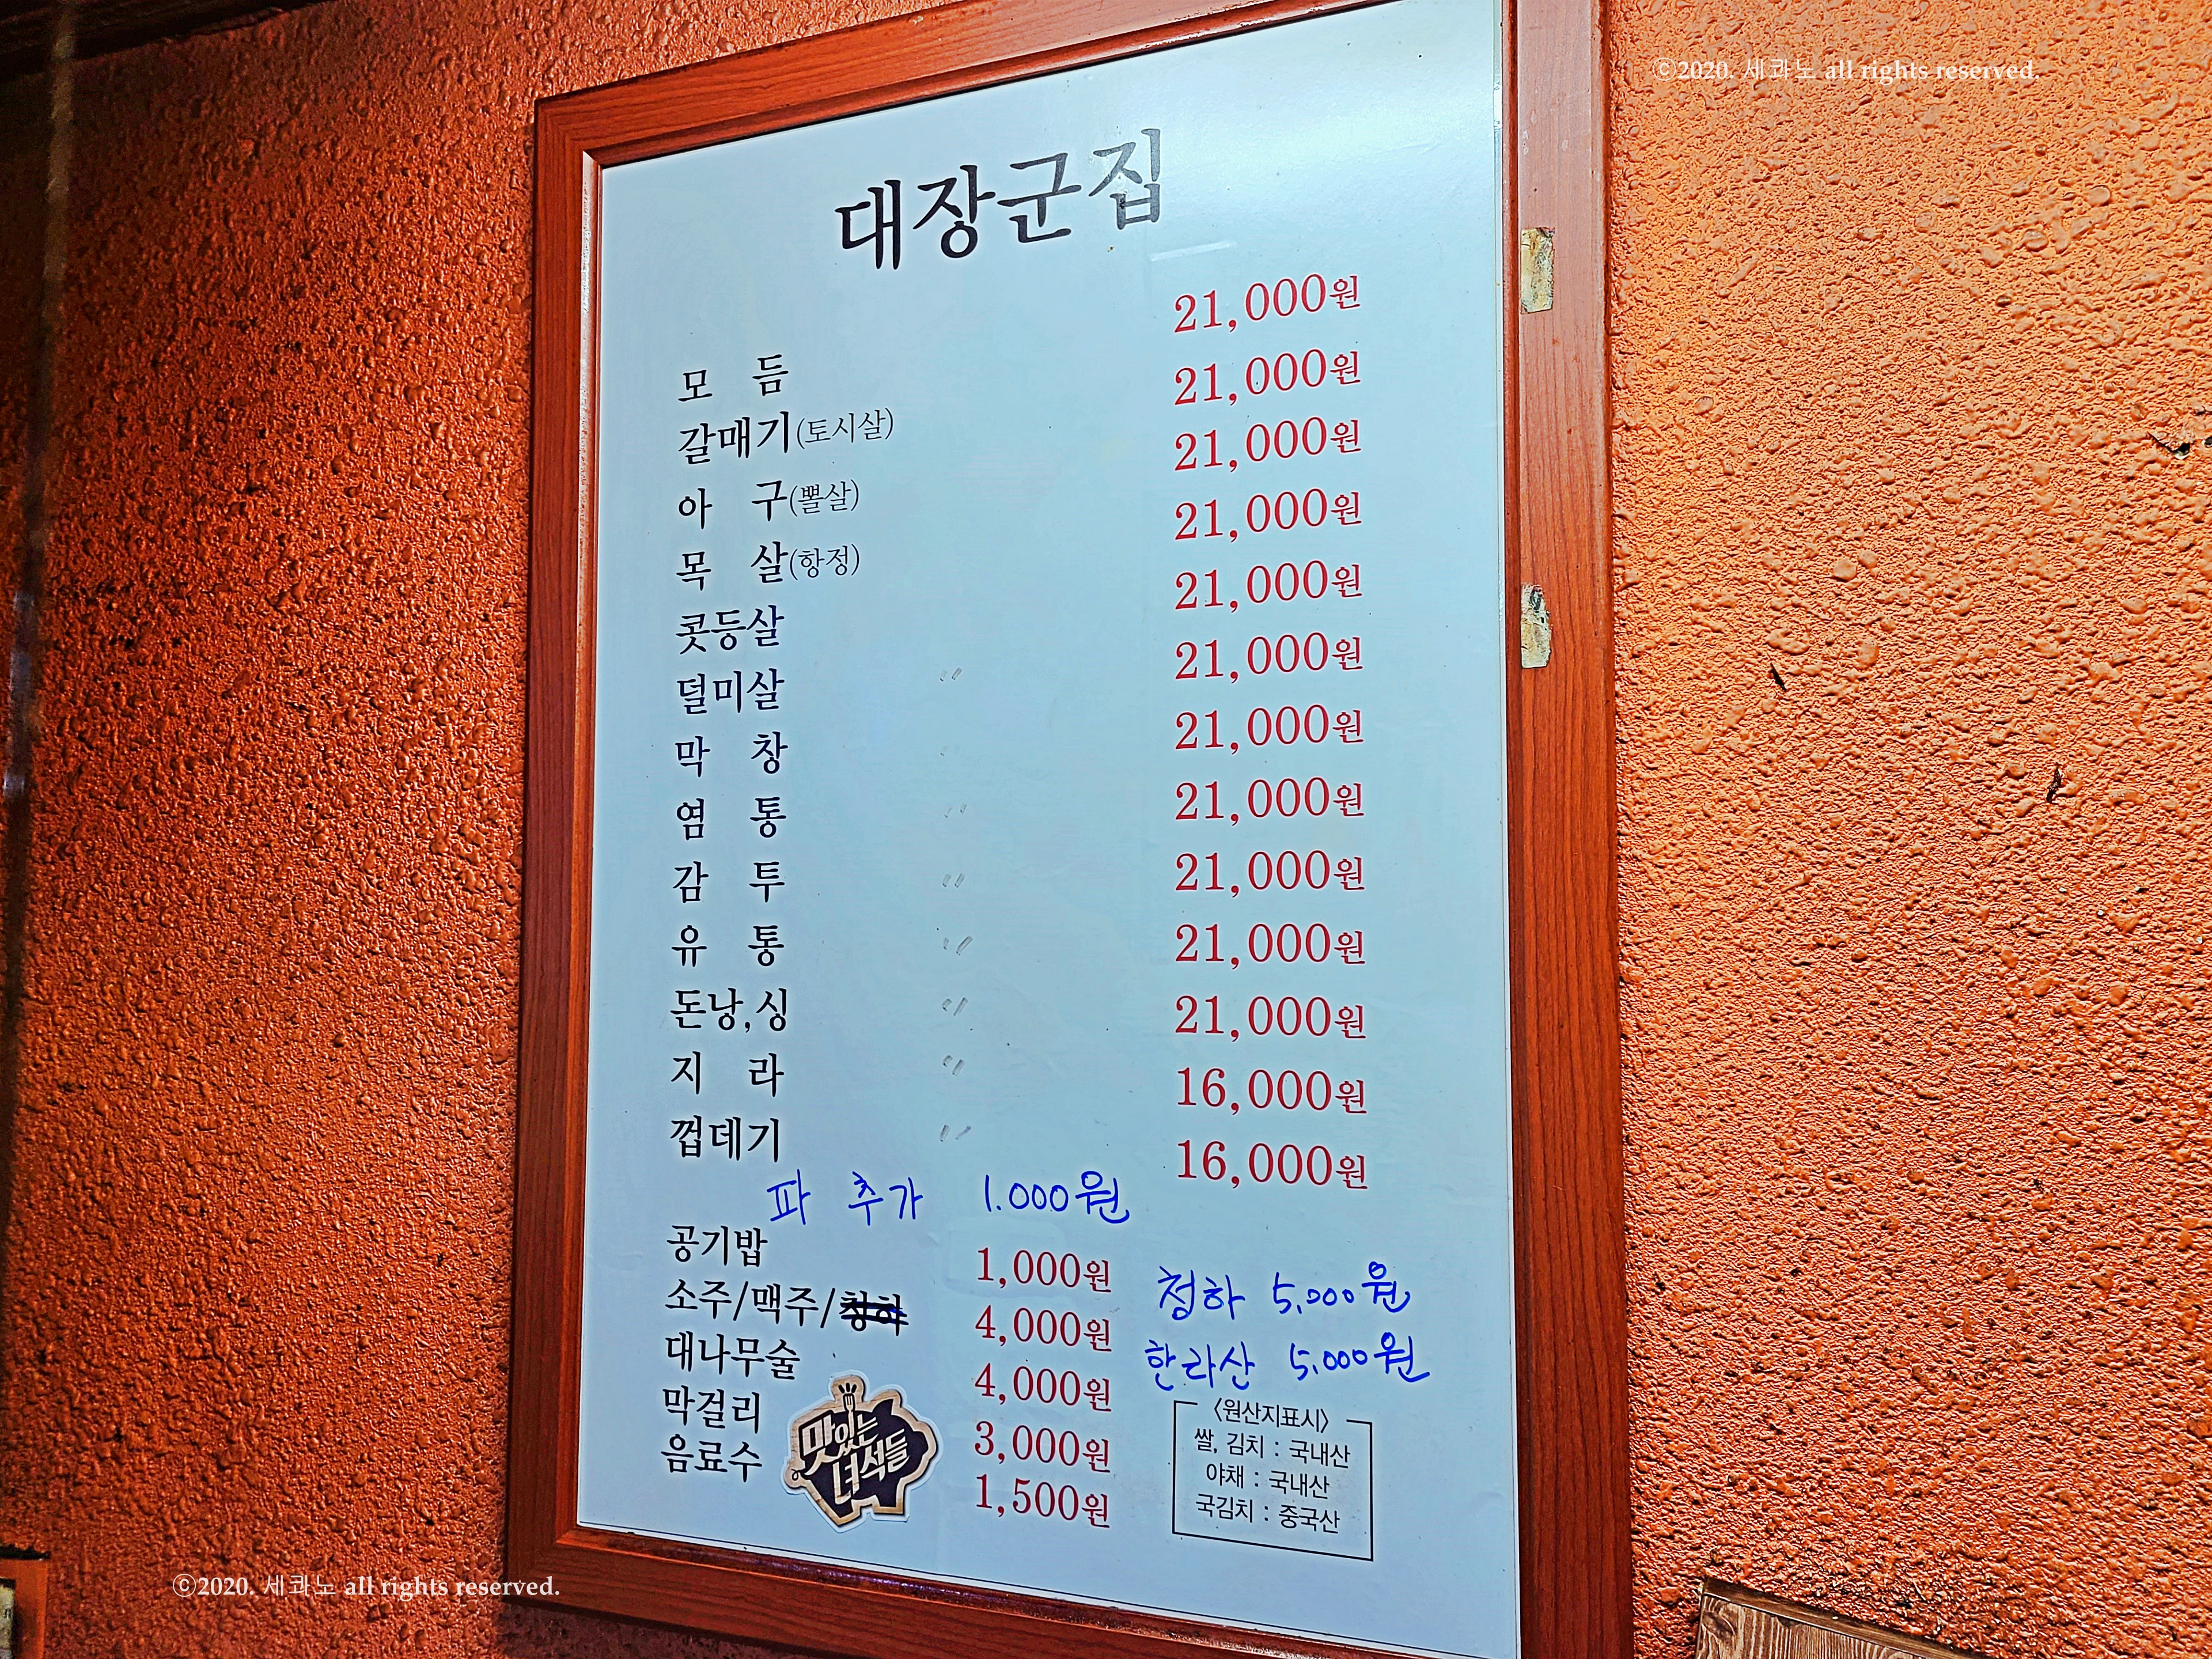 ⓒ2020. 세콰노 all rights reserved.
대장군집
모 듬 21,000원
갈매기(토시살) 21,000원
아 구(뽈살) 21,000원
목 살(항정) 21,000원
콧등살 21,000원
덜미살 〃 21,000원
막 창 〃 21,000원
염 통 〃 21,000원
감 투 〃 21,000원
유 통 〃 21,000원
돈낭,싱 〃 21,000원
지 라 〃 16,000원
껍데기 〃 16,000원
파 추가 1.000원
공기밥 1,000원
소주/맥주/청하 4,000원 청하 5,000원
대나무술 4,000원 한라산 5,000원
막걸리 3,000원
음료수 1,500원
맛있는
녀석들
〈원산지표시〉
쌀, 김치 : 국내산
야채 : 국내산
국김치 : 중국산
ⓒ2020. 세콰노 all rights reserved.